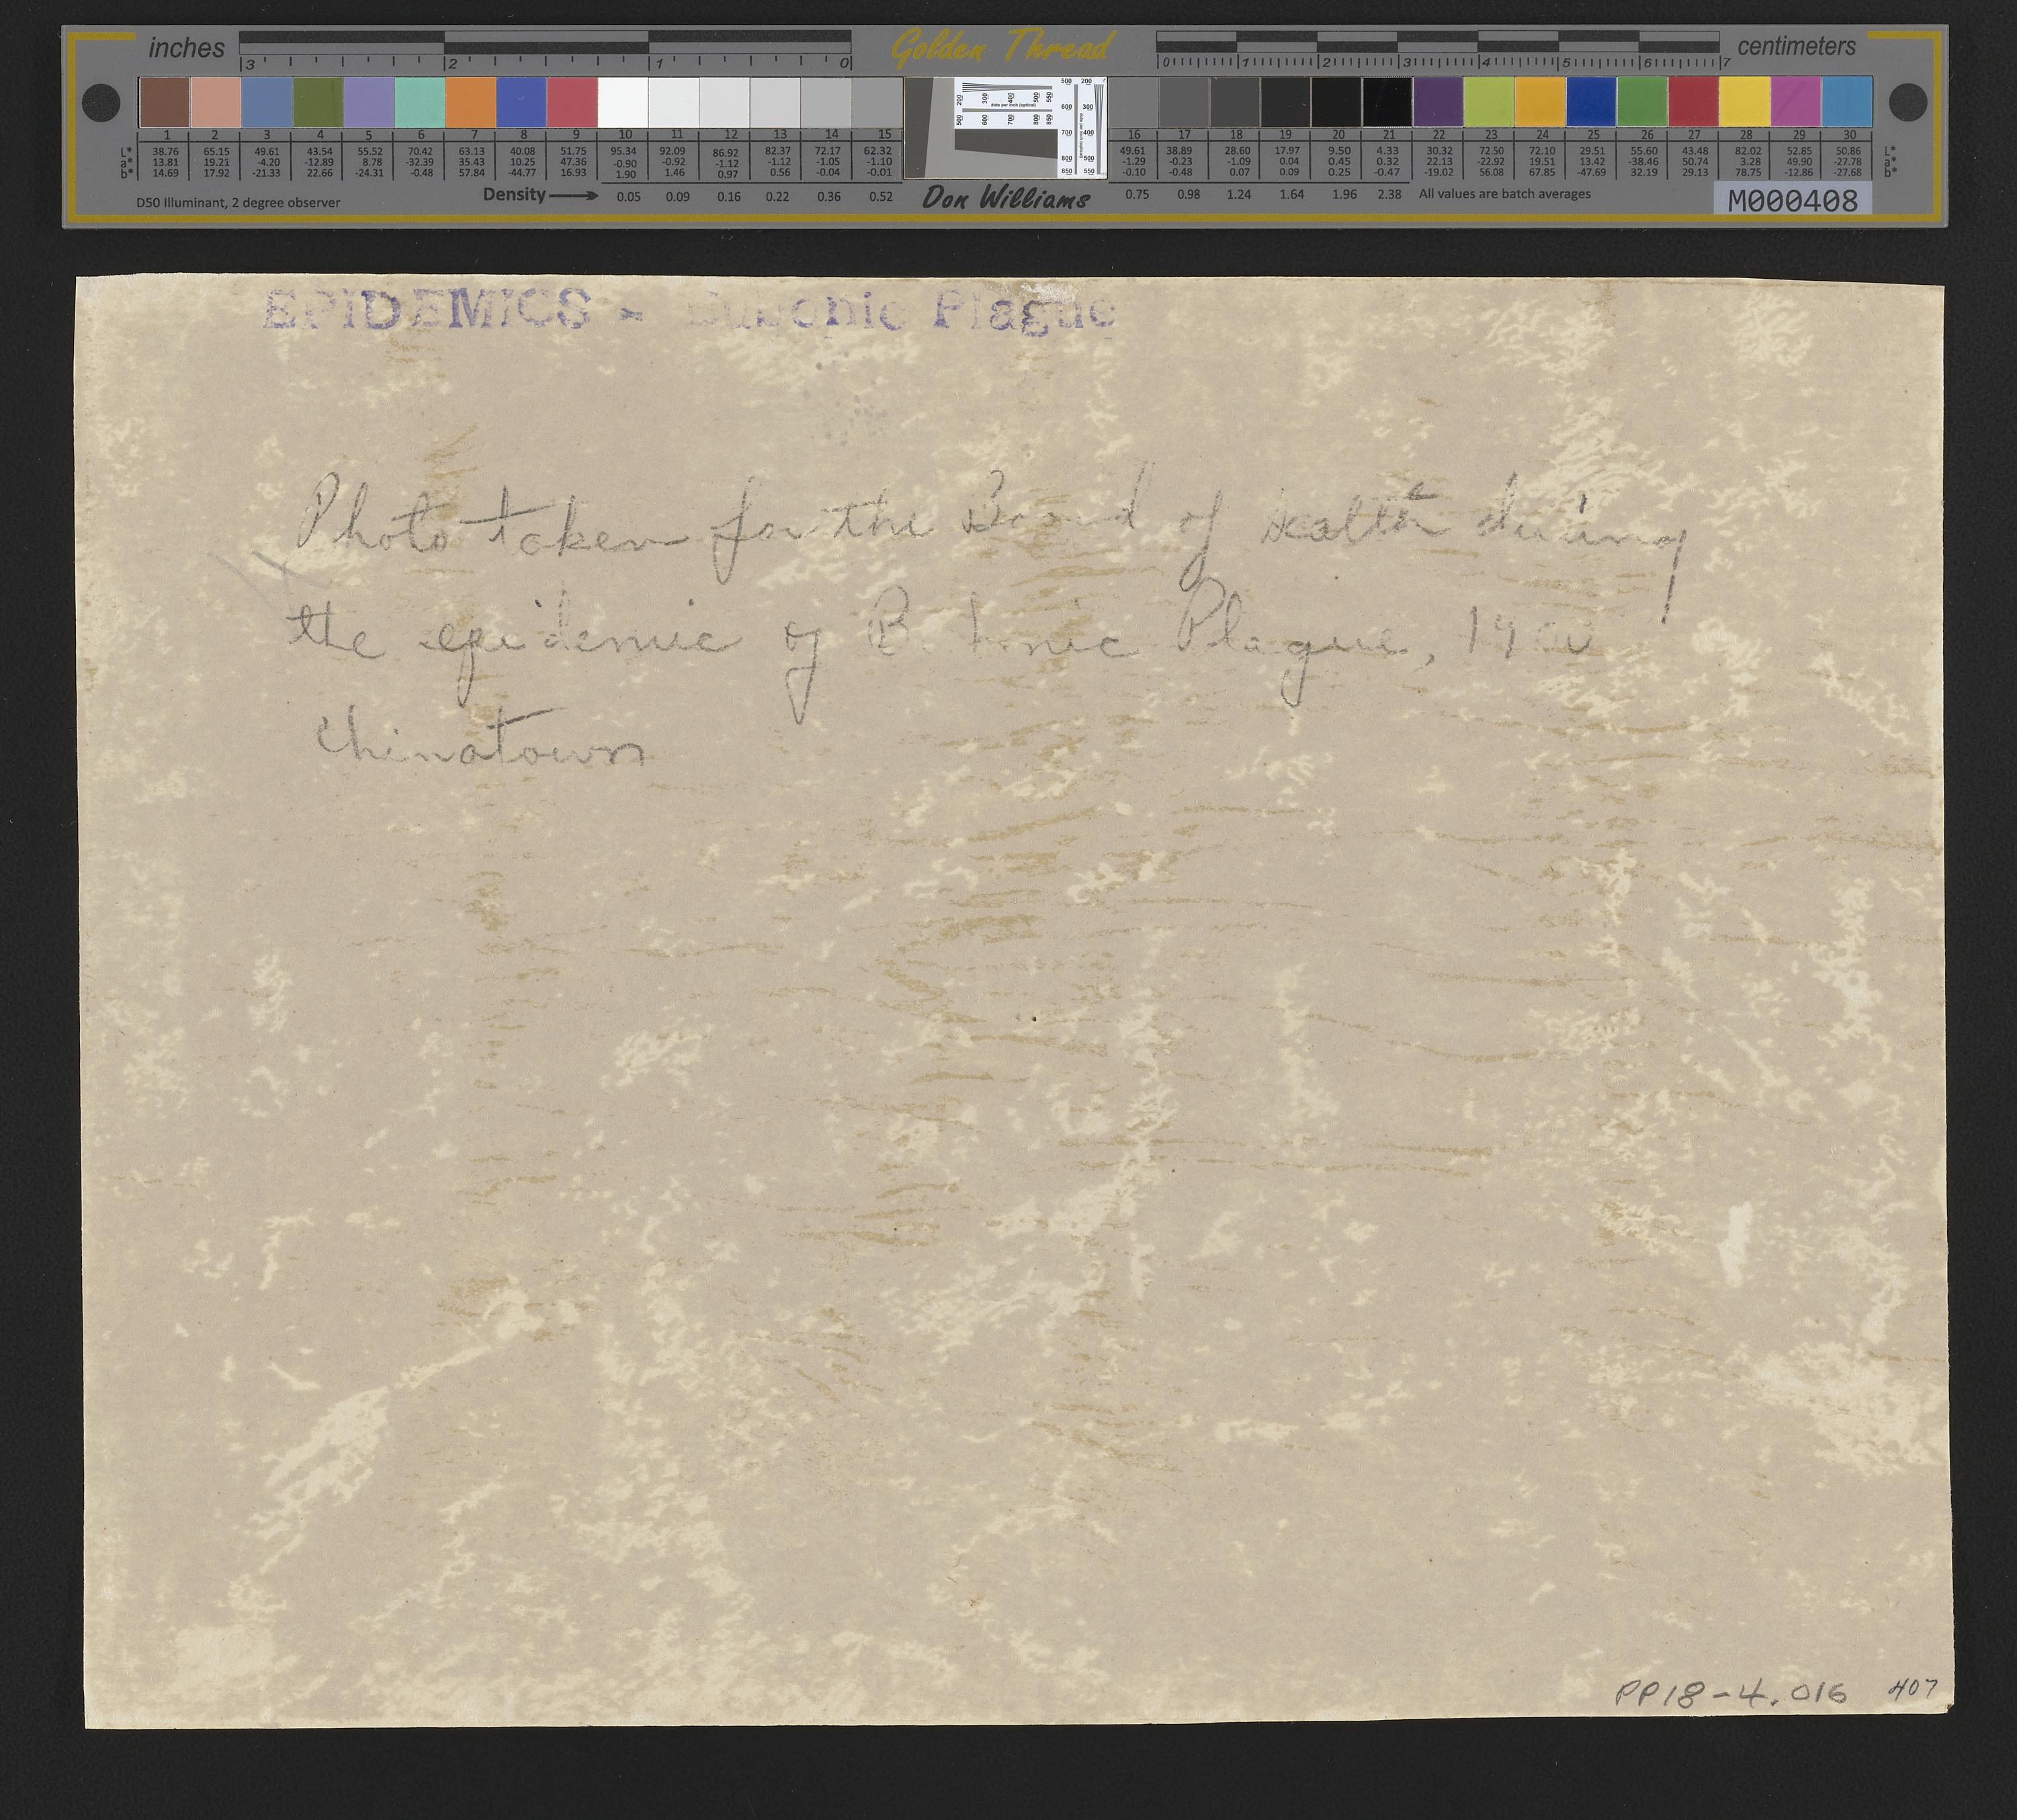 inches
3 2 1 0
Golden Thread
0 1 2 3 4 5 6 7
centimeters
1 2 3 4 5 6 7 8 9 10 11 12 13 14 15
16 17 18 19 20 21 22 23 24 25 26 27 28 29 30
L* 38.76 65.15 49.61 43.54 55.52 70.42 63.13 40.08 51.75 95.34 92.09 86.92 82.37 72.17 62.32
a* 13.81 19.21 -4.20 -12.89 8.78 -32.39 35.43 10.25 47.36 -0.90 -0.92 -1.12 -1.12 -1.05 -1.10
b* 14.69 17.92 -21.33 22.66 -24.31 -0.48 57.84 -44.77 16.93 1.90 1.46 0.97 0.56 -0.04 -0.01
49.61 38.89 28.60 17.97 9.50 4.33 30.32 72.50 72.10 29.51 55.60 43.48 82.02 52.85 50.86 L*
-1.29 -0.23 -1.09 0.04 0.45 0.32 22.13 -22.92 19.51 13.42 -38.46 50.74 3.28 49.90 -27.78 a*
-0.10 -0.48 0.07 0.09 0.25 -0.47 -19.02 56.08 67.85 -47.69 32.19 29.13 78.75 -12.86 -27.68 b*
D50 Illuminant, 2 degree observer
Density 0.05 0.09 0.16 0.22 0.36 0.52
Don Williams
0.75 0.98 1.24 1.64 1.96 2.38 All values are batch averages
M000408
EPIDEMICS - Bubonic Plague
Photo taken for the Board of Health during
the epidemic of Bubonic Plague, 1900
Chinatown
PP18-4.016 407